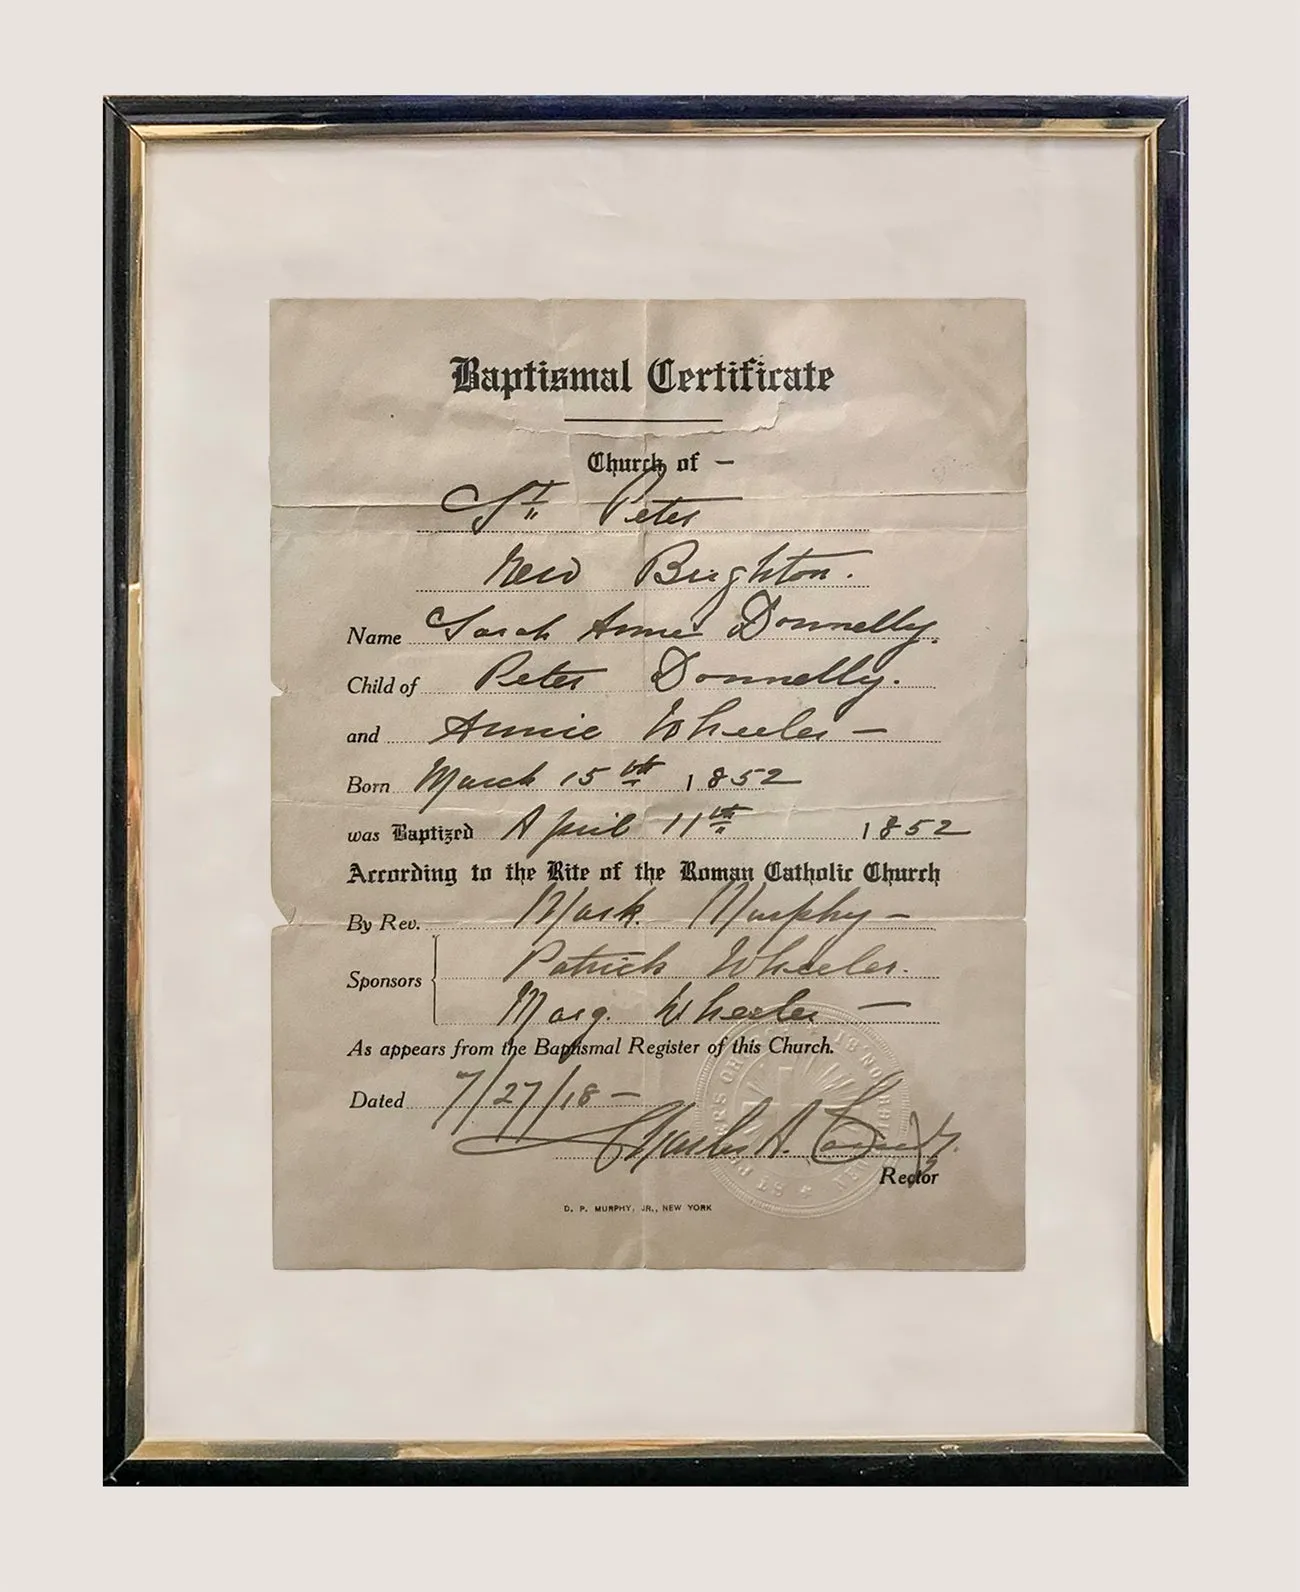 Baptismal Certificate
Church of —
St Peter
New Brighton.
Name Sarah Anne Donnelly.
Child of Peter Donnelly.
and Annie Wheeler —
Born March 15th 1852
was Baptized April 11th 1852
According to the Rite of the Roman Catholic Church
By Rev. Mark Murphy —
Sponsors Patrick Wheeler.
Marg. Wheeler —
As appears from the Baptismal Register of this Church.
Dated 7/27/18 —
Charles A.
Rector
D. P. MURPHY, JR., NEW YORK